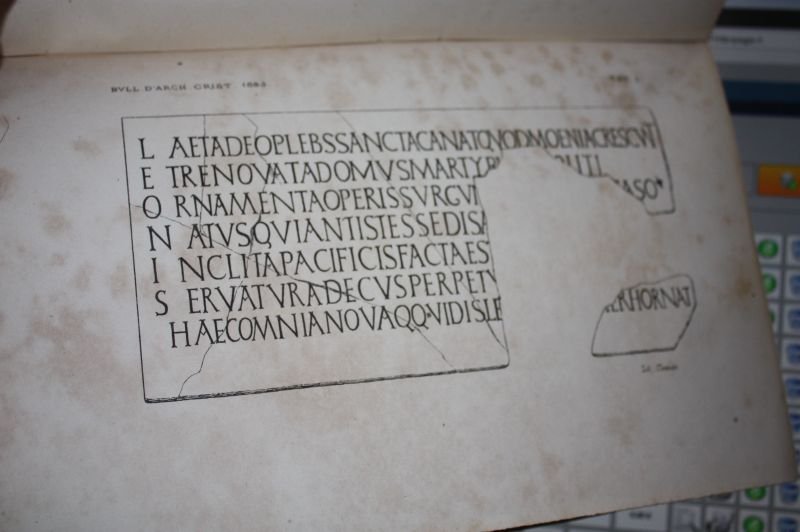 BVLL. D'ARCH. CRIST. 1883
L AETADEOPLEBSSANCTACANATQVODMOENIACRESCVNT
E TRENOVATADOMVSMARTY
O RNAMENTAOPERISSVRGV
N ATVSQVIANTISTESSEDIS
I NCLITAPACIFICISFACTAES
S ERVATVRADECVSPERPETV
HAECOMNIANOVAQQ·VIDISLE
HORNAT